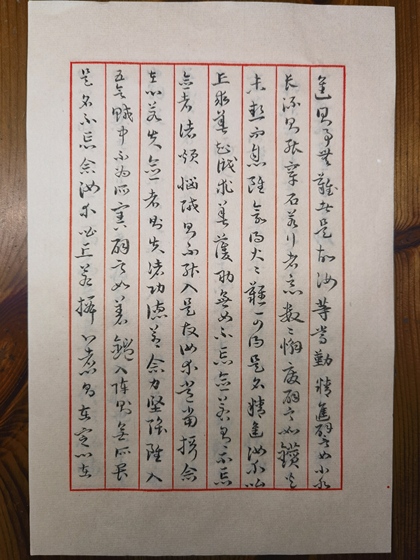 進則事無難者是故汝等當勤精進譬如小水
長流則能穿石若行者之心數〻懈廢譬如鑽火
未熱而息雖欲得火〻難可得是名精進汝等比
丘求善知識求善護助無如不忘念若有不忘
念者諸煩惱賊則不能入是故汝等常當攝念
在心若失念者則失諸功德若念力堅強雖入
五欲賊中不為所害譬如著鎧入陣則無所畏
是名不忘念汝等比丘若攝心者心則在定心在